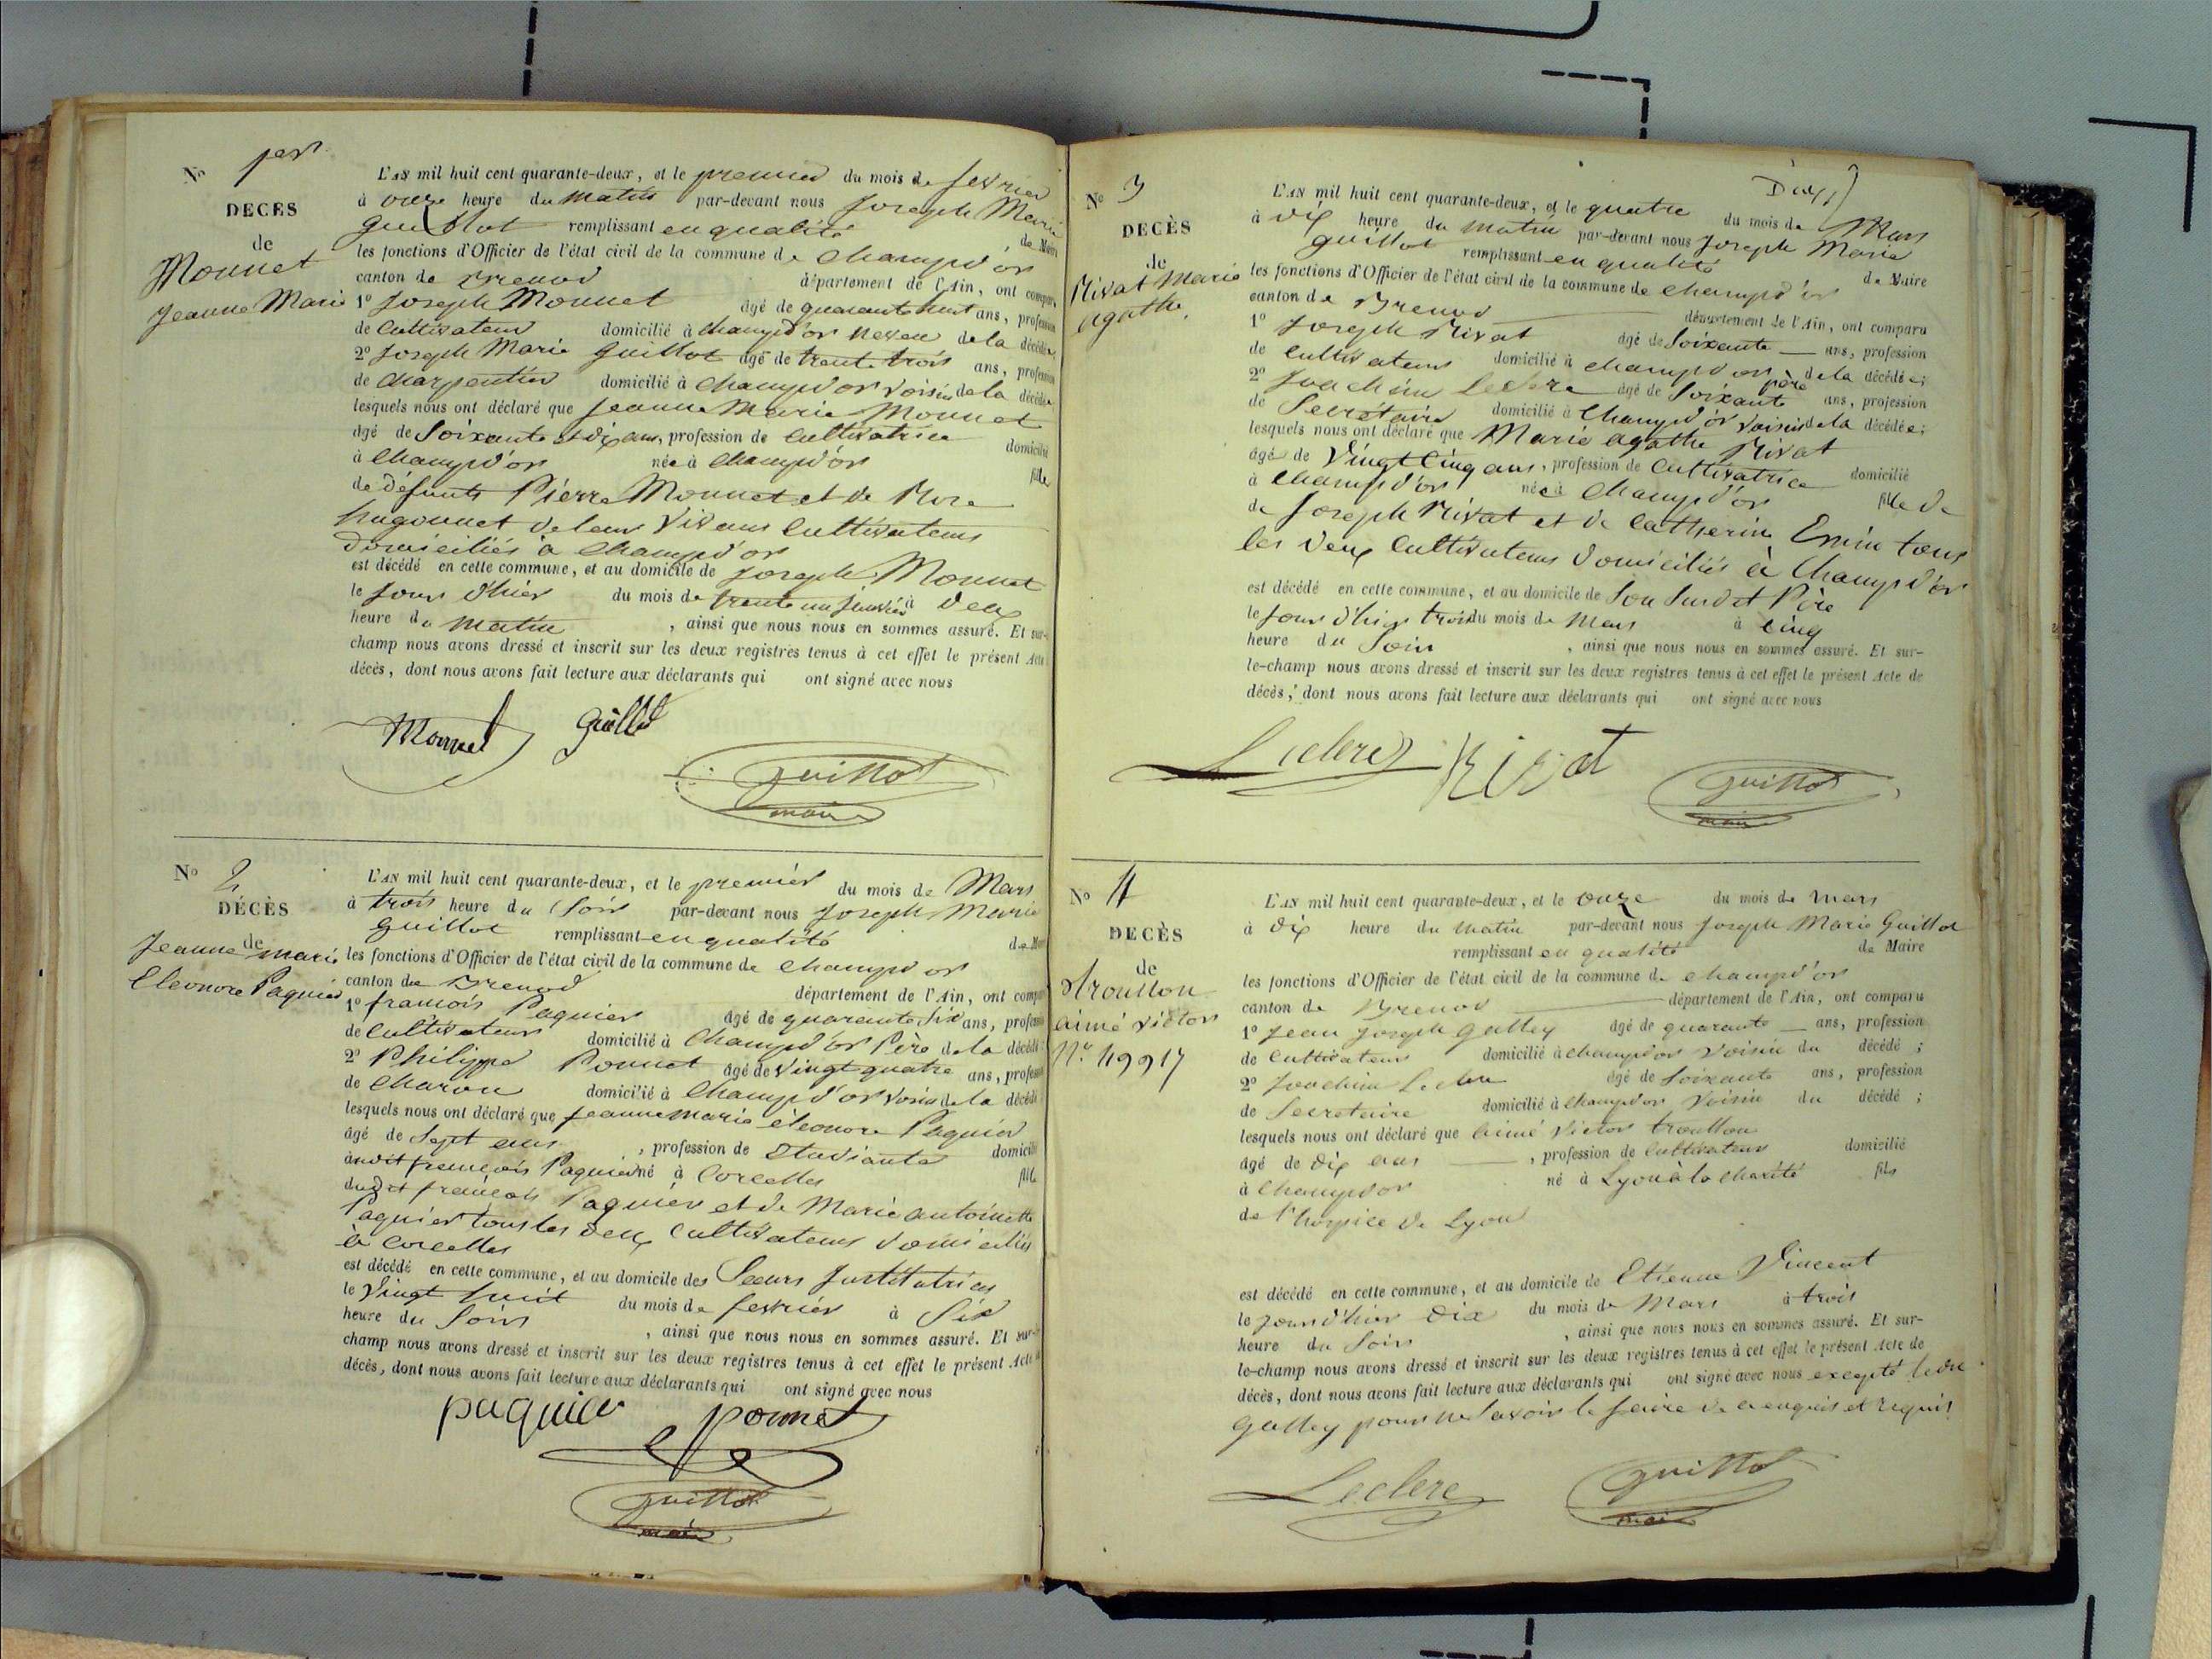 N° 1er
DECES
de
Monnet
Jeanne Marie
L'AN mil huit cent quarante-deux, et le premier du mois de fevrier
à onze heure du matin par-devant nous Joseph Marie
Guillot remplissant en qualité de Maire
les fonctions d'Officier de l'état civil de la commune de Champd'or
canton de Brenod département de l'Ain, ont comparu
1° Joseph Monnet âgé de quarante huit ans, profession
de Cultivateur domicilié à Champd'or neveu de la décédée;
2° Joseph Marie Guillot âgé de trente trois ans, profession
de Charpentier domicilié à Champd'or voisin de la décédée
lesquels nous ont déclaré que Jeanne Marie Monnet
âgé de Soixante et dix ans, profession de Cultivatrice domicilié
à Champd'or née à Champd'or fille
de défunts Pierre Monnet et de
hugonnet de leur Vivans Cultivateurs
Domiciliés à Champd'or
est décédé en cette commune, et au domicile de Joseph Monnet
le Jour d'hier du mois de trente un Janvier à deux
heure du matin, ainsi que nous nous en sommes assuré. Et sur-
champ nous avons dressé et inscrit sur les deux registres tenus à cet effet le présent Acte
décès, dont nous avons fait lecture aux déclarants qui ont signé avec nous
Monnet Guillot
Guillot
maire
N° 2
DÉCÈS
de
Jeanne marie
Eleonore Paquier
L'AN mil huit cent quarante-deux, et le premier du mois de Mars
à trois heure du Soir par-devant nous Joseph Marie
Guillot remplissant en qualité de Maire
les fonctions d'Officier de l'état civil de la commune de Champd'or
canton de Brenod département de l'Ain, ont comparu
1° francois Paquier âgé de quarante Six ans, profession
de Cultivateur domicilié à Champd'or Père de la décédé
2° Philippe Ponnet âgé de Vingt quatre ans, profession
de Charon domicilié à Champd'or voisin de la décédé
lesquels nous ont déclaré que Jeanne Marie éléonore Paquier
âgé de Sept ans, profession de Etudiante domicilié
audit francois Paquier né à Corcelles fille
dudit francois Paquier et de Marie antoinette
Paquier tous les deux Cultivateurs domiciliés
à Corcelles
est décédé en cette commune, et au domicile des Soeurs Institutrices
le Vingt huit du mois de fevrier à Six
heure du Soir, ainsi que nous nous en sommes assuré. Et sur-
champ nous avons dressé et inscrit sur les deux registres tenus à cet effet le présent Acte
décès, dont nous avons fait lecture aux déclarants qui ont signé avec nous
paquier ponnet
Guillot
maire
N° 3
DÉCÈS
de
Rivat Marie
agathe.
L'AN mil huit cent quarante-deux, et le quatre du mois de Mars
à dix heure du matin par-devant nous Joseph Marie
Guillot remplissant en qualité de Maire
les fonctions d'Officier de l'état civil de la commune de Champd'or
canton de Brenod département de l'Ain, ont comparu
1° Joseph Rivat âgé de Soixante ans, profession
de Cultivateur domicilié à Champd'or père de la décédée;
2° Joachim Leclerc âgé de Soixante ans, profession
de Secretaire domicilié à Champd'or voisin de la décédée;
lesquels nous ont déclaré que Marie agathe Rivat
âgé de Vingt Cinq ans, profession de Cultivatrice domicilié
à Champd'or née à Champd'or fille de
de Joseph Rivat et de Catherine Emin tous
les deux Cultivateurs domiciliés à Champd'or
est décédé en cette commune, et au domicile de Son Susdit Père
le Jour d'hier trois du mois de Mars à Cinq
heure du Soir, ainsi que nous nous en sommes assuré. Et sur-
le-champ nous avons dressé et inscrit sur les deux registres tenus à cet effet le présent Acte de
décès, dont nous avons fait lecture aux déclarants qui ont signé avec nous
Leclerc Rivat
Guillot
maire
N° 4
DECÈS
de
Troullon
aimé victor
N° 49917
L'AN mil huit cent quarante-deux, et le onze du mois de mars
à dix heure du matin par-devant nous Joseph Marie Guillot
remplissant en qualité de Maire
les fonctions d'Officier de l'état civil de la commune de Champd'or
canton de Brenod département de l'Ain, ont comparu
1° Jean Joseph Galley âgé de quarante ans, profession
de Cultivateur domicilié à Champd'or voisin du décédé;
2° Joachim Leclerc âgé de Soixante ans, profession
de Secretaire domicilié à Champd'or Voisin du décédé;
lesquels nous ont déclaré que aimé Victor troullon
âgé de dix ans, profession de Cultivateur domicilié
à Champd'or né à Lyon à la charité fils
de l'hospice de Lyon
est décédé en cette commune, et au domicile de Etienne Vincent
le jour d'hier dix du mois de Mars à trois
heure du Soir, ainsi que nous nous en sommes assuré. Et sur-
le-champ nous avons dressé et inscrit sur les deux registres tenus à cet effet le présent Acte de
décès, dont nous avons fait lecture aux déclarants qui ont signé avec nous excepté
Galley pour ne Savoir le faire de ce enquis et requis
Leclerc
Guillot
maire